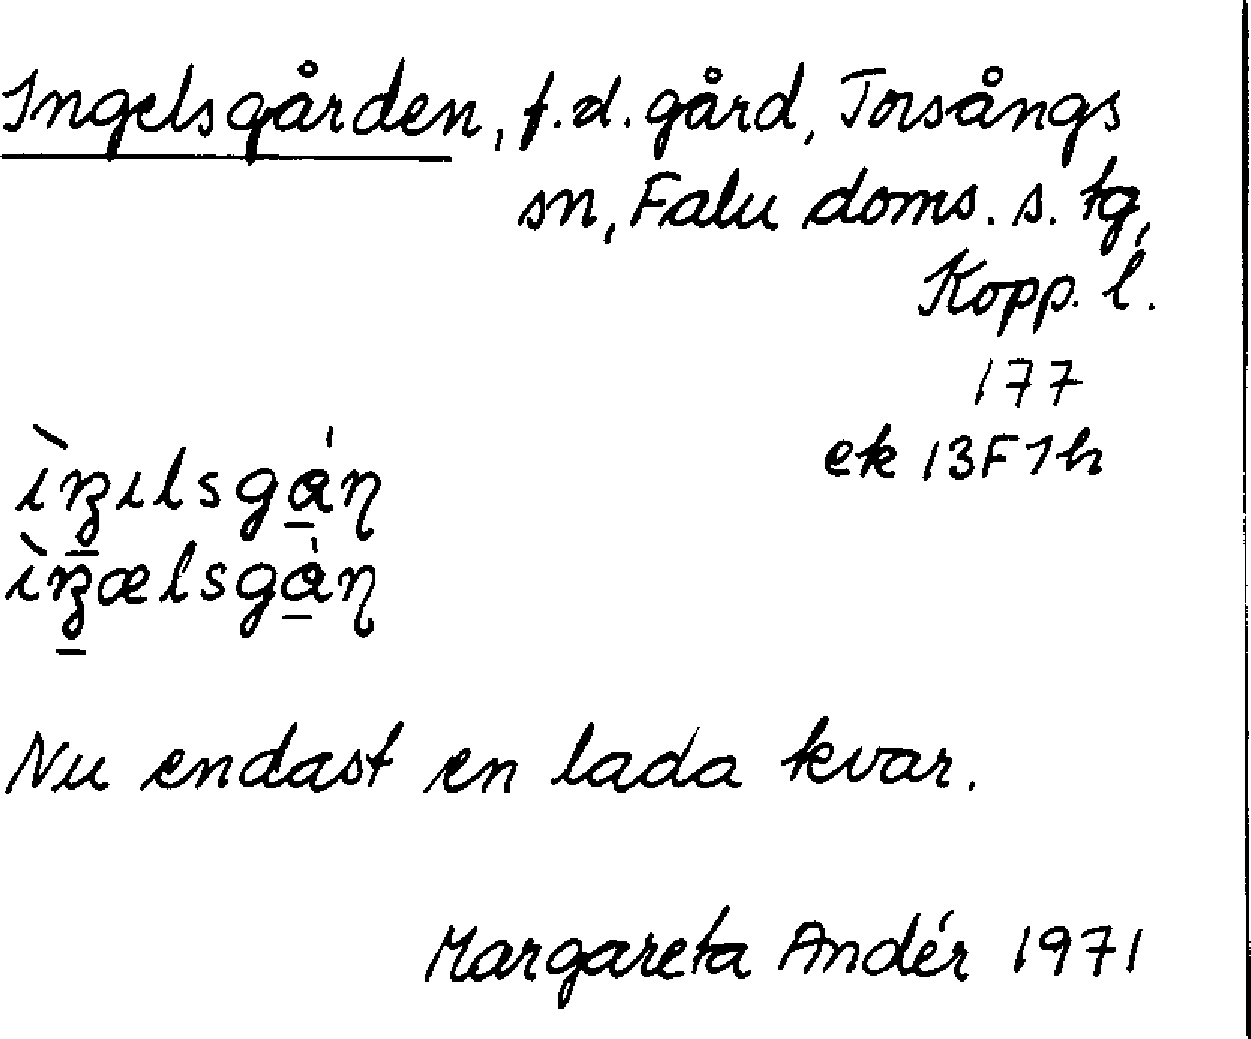 Ingelsgården, f.d. gård, Torsångs
sn, Falu doms. s. tg,
Kopp. l.
177
ek 13F1h
Nu endast en lada kvar.
Margareta Andér 1971